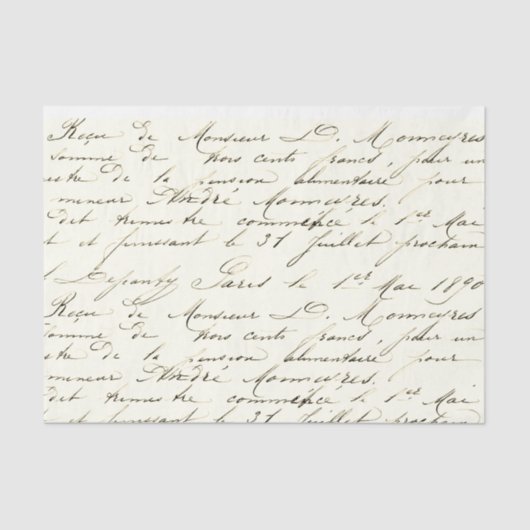 Reçu de Monsieur D. Monnieres
somme de trois cents francs, pour un
stre de la pension alimentaire pour
mineur André Monnières.
dit trimestre commencé le 1er Mai
et finissant le 31 Juillet prochain
Paris le 1er Mai 1890
Reçu de Monsieur D. Monnieres
somme de trois cents francs, pour un
stre de la pension alimentaire pour
mineur André Monnières.
dit trimestre commencé le 1er Mai
et finissant le 31 Juillet prochain